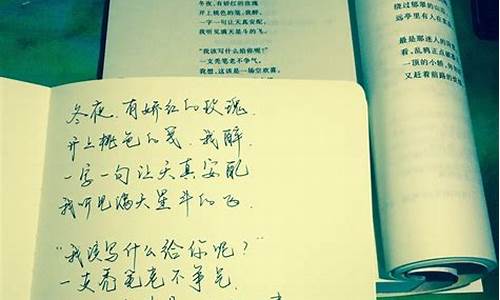 冬夜，有娇红的玫瑰
开上桃色的笺，我醉，
一字一句让天真安配，
我听见满天星斗的飞。
"我该写什么给你呢？"
一支秃笔老不争气，
我想，这该是一场空欢喜，
绕过郁黎的山
远亭里有人在
最是那迷人的
看，乱鸦正点
一顶的小轿，
又赶着前路的
冬夜，有娇红的玫瑰，
开上桃色的笺，我醉
一字一句让天真安配
我听见满天星斗的飞。
"我该写什么给你呢？"
一支秃笔老不争气，